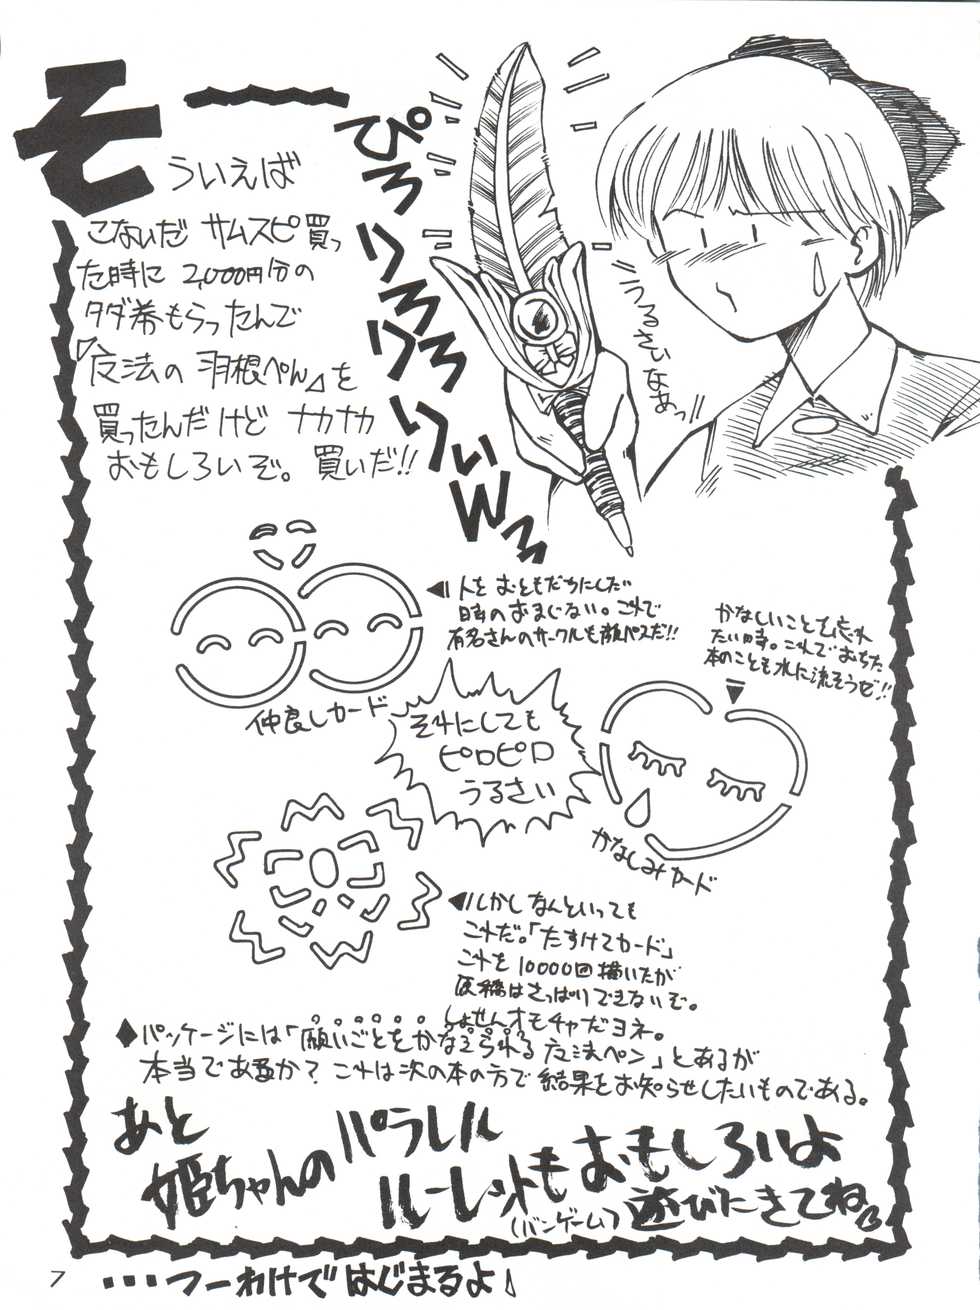 そーーういえば
こないだ サムスピ買っ
た時に 2,000円分の
タダ券もらったんで
「魔法の羽根ぺん」を
買ったんだけど ナカナカ
おもしろいぞ。買いだ!!
ぴろりろりろりろりぃWろ
うるさいなぁっ
人をおともだちにしたい
時のおまじない。これで
有名さんのサークルも顔パスだ!!
仲良しカード
かなしいことを忘れ
たい時。これでおちた
本のことも水に流そうぜ!!
それにしても
ピロピロ
うるさい
かなしみカード
しかしなんといっても
これだ。「たすけてカード」
これを10000回描いたが
原稿はさっぱりできないぞ。
しょせんオモチャだヨネ。
◆パッケージには「願いごとをかなえられる 魔法ペン」とあるが
本当であるか? これは次の本の方で結果をお知らせしたいものである。
あと
姫ちゃんのパラレル
ルーレットもおもしろいよ
(バンゲーム)遊びにきてね
7
・・・つーわけではじまるよ♪